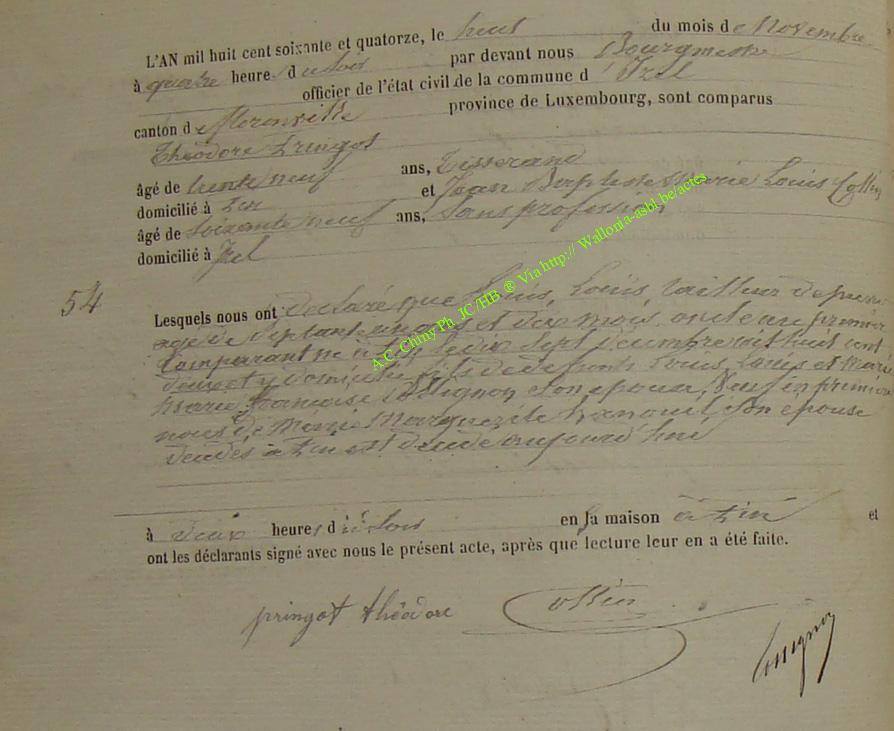 L'AN mil huit cent soixante et quatorze, le huit du mois de Novembre
à quatre heures du soir par devant nous Bourgmestre
officier de l'état civil de la commune d'Izel
canton de Florenville province de Luxembourg, sont comparus
Théodore Pringot
âgé de trente neuf ans, Tisserand
domicilié à et Jean Baptiste Marie Louis Collin
âgé de soixante neuf ans, sans profession
domicilié à Izel
54
Lesquels nous ont déclaré que Louis, Louis, tailleur de pierre
agé de septante ans et dix mois, oncle au premier
comparant né à le dix sept décembre mil huit cent
et y domicilié fils de défunts Louis, Louis et Marie
Marie Françoise son épouse, veuf en premier
de Marie Marguerite son épouse
à est décédé aujourd'hui
à deux heures du soir en sa maison à et
ont les déclarants signé avec nous le présent acte, après que lecture leur en a été faite.
pringot théodore Collin
A.C. Chiny Ph. JC/HB ® Via http:// Wallonia-asbl.be/actes